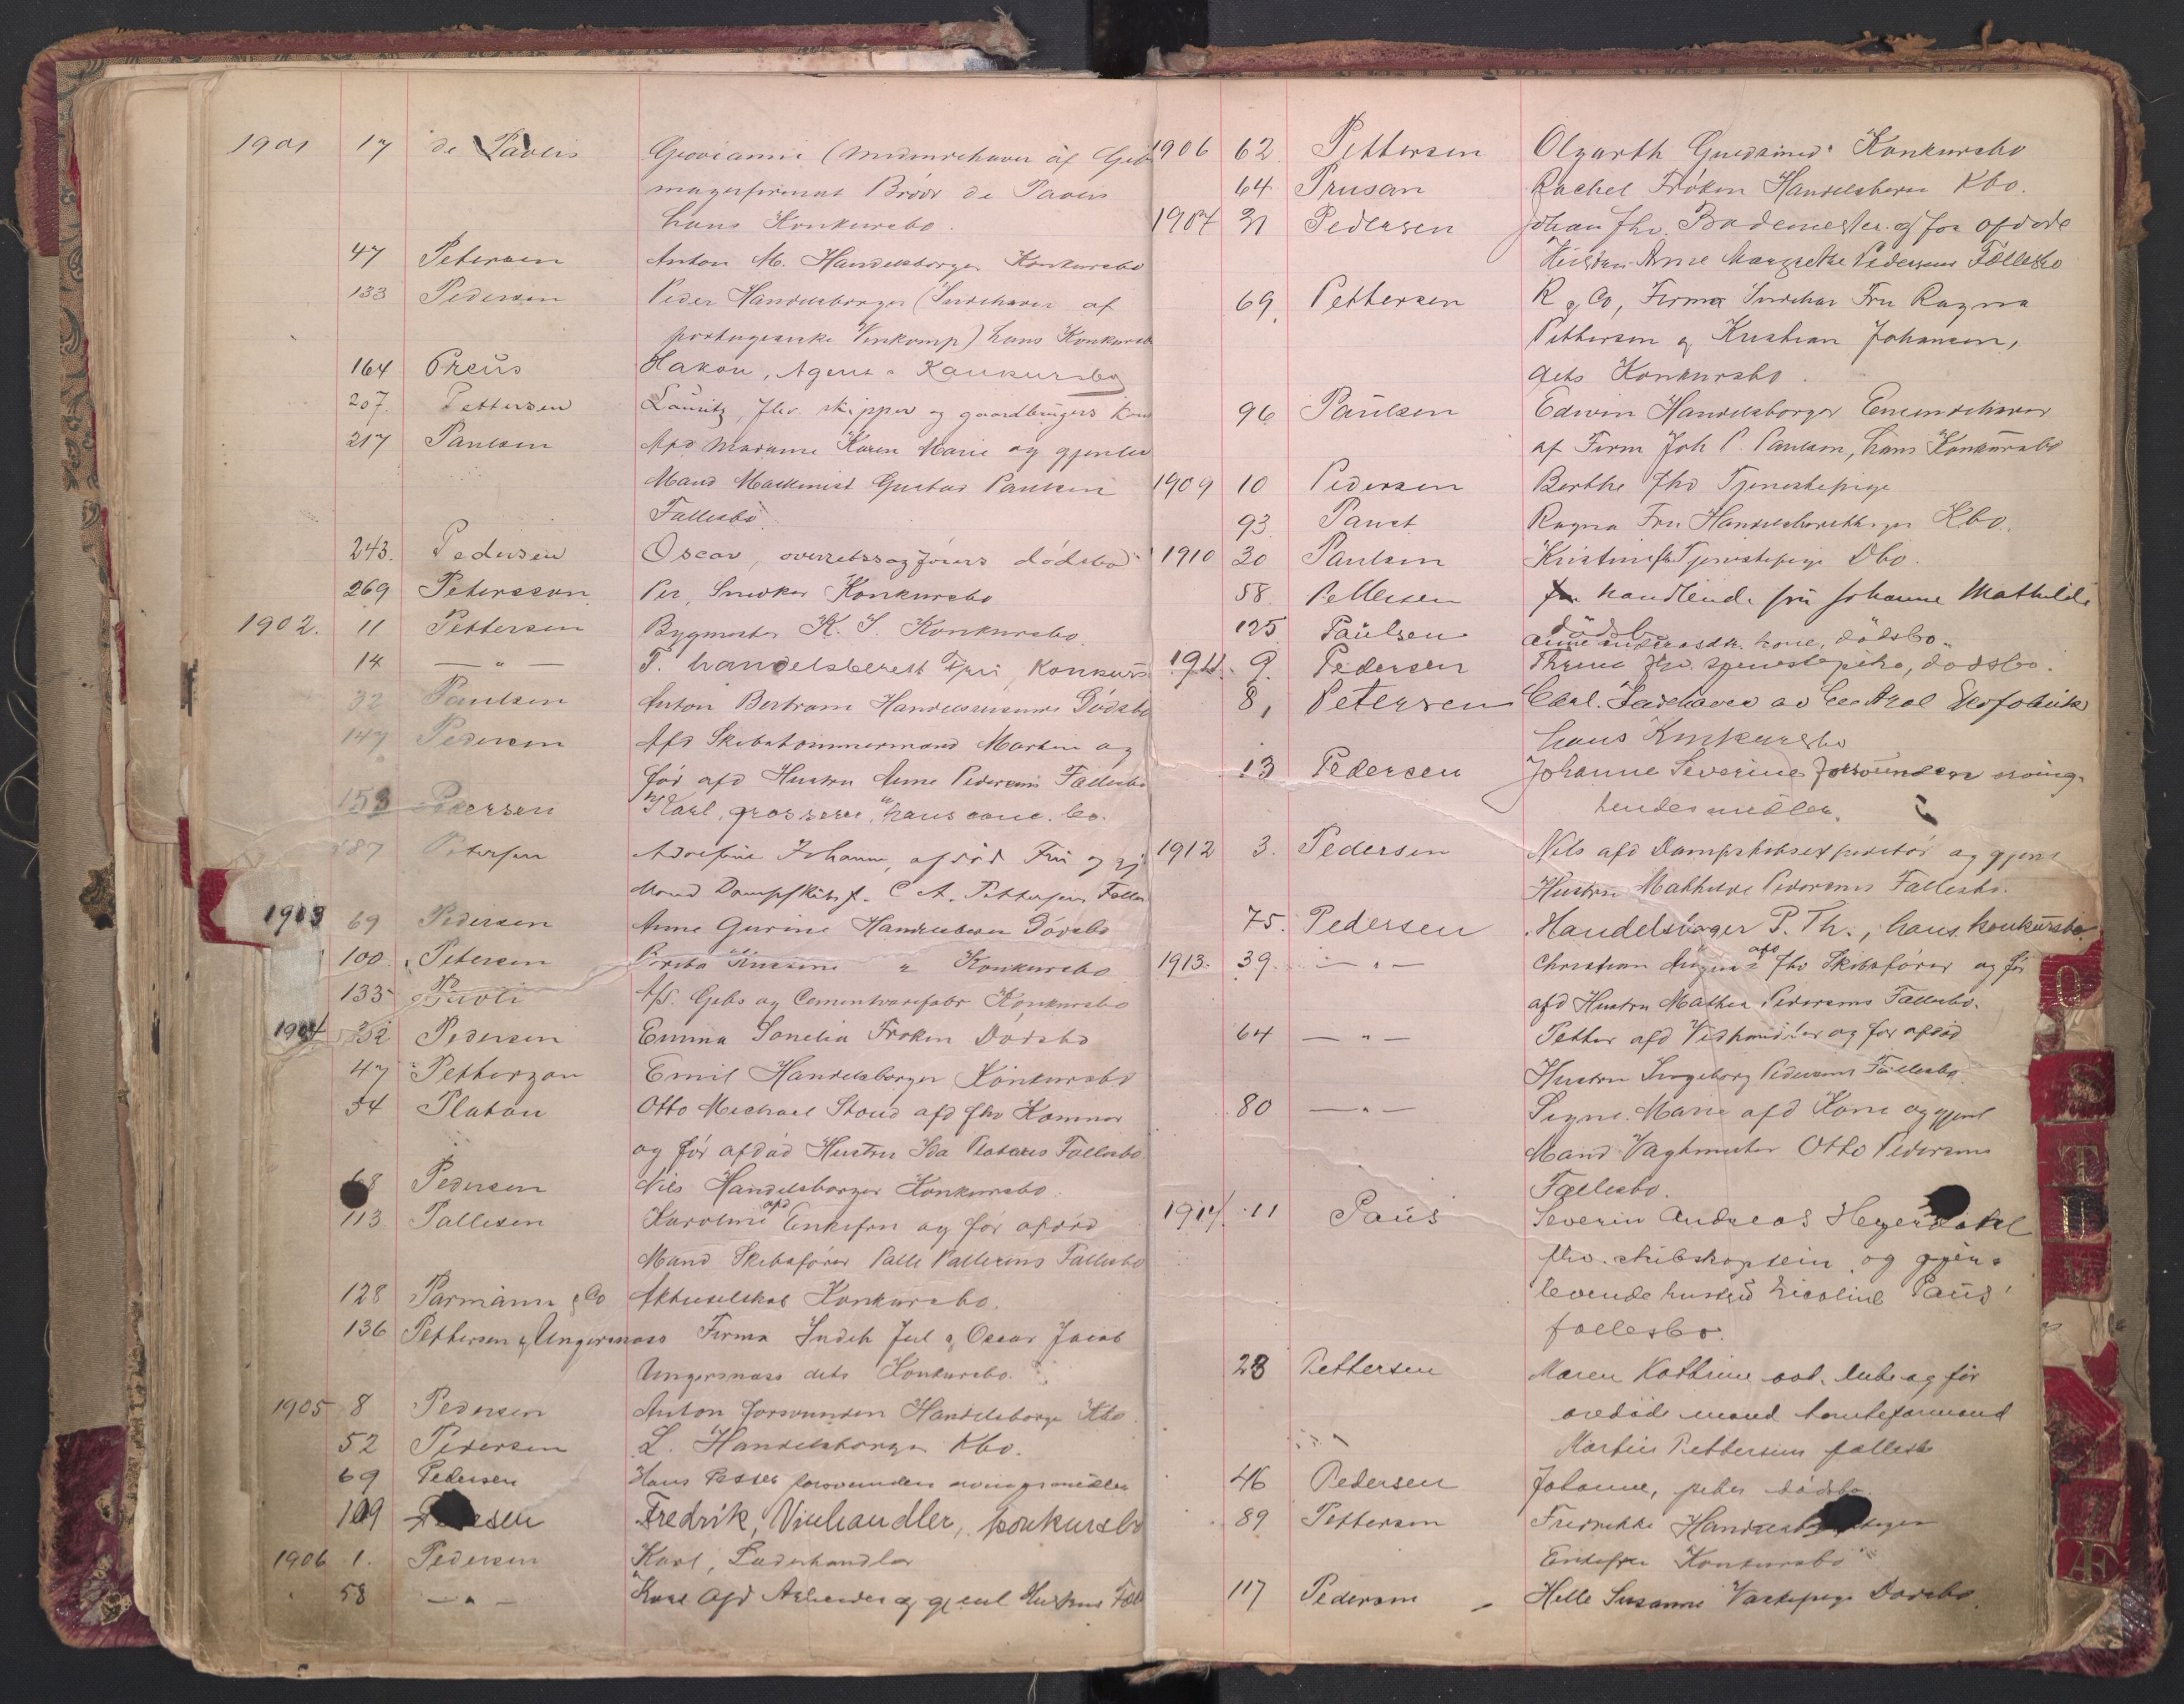 1901 17 de Paolis Giovanni (Medindehaver af Gibs
magerfirmat Brødr de Paolis
hans Konkursbo.
47 Petersen Anton M. Handelsborger Konkursbo
133 Pedersen Peder Handelsborger (Indehaver af
portugisiske Vinkomp) hans Konkursb
164 Preüs Hakon, Agent " Konkursbo
207 Pettersen Lauritz, fhv. skipper og gaardbrugers Kon
217 Paulsen Afd Madame Karen Marie og gjenlev
Mand Maskinist Gustav Paulsens
Fællesbo.
243. Pedersen Oscar, overretssagførers dødsbo
269 Petersson Per, Snedker Konkursbo
1902. 11 Pettersen Bygmester K. S. Konkursbo
14 — " — T. handelsberett Fru, Konkurs
32 Paulsen Anton Bertram Handelsmands Dødsbo
147 Pedersen Afd Skibstømmermand Martin og
før afd Hustru Anne Pedersens Fællesbo
153 Pedersen Karl, grosserer, hans conc. bo.
187 Petersen Adolfine Johanne, afdød Fru og gj
Mand Dampskibsf. C A. Pettersens Fælles
1903 69 Pedersen Anne Gurine Handelsbern Dødsbo
100. Petersen " Konkursbo
135 Paoli A/S. Gibs og Cementvarefabr Konkursbo
1904 32 Pedersen Emma Frøken Dødsbo
47 Petterson Emil Handelsborger Konkursbo
54 Platou Otto Michael Stoud afd fhv Kemner
og før afdød Hustru Ida Platous Fællesbo
68 Pedersen Nils Handelsborger Konkursbo.
113 Pallesen Karoline afd Enkefru og før afdød
Mand Skibsfører Palle Pallesens Fællesbo
128 Parmann & Co Aktieselskab Konkursbo.
136 Pettersen & Ungersnass Firma Indeh Jul & Oscar Jacob
Ungersnass dets Konkursbo.
1905 8 Pedersen Anton forsvunden Handelsborger Kbo.
52 Pedersen L. Handelsborger Kbo.
69 Pedersen Hans Peder forsvunden
109 Fredrik, Vinhandler, konkursbo
1906 1. Pedersen Karl, Læderhandler
58 — " — Karl Afd Arbeider og gjenl Hustrus Fæl
1906 62. Pettersen Olgarth Konkursbo
64 Prusan Rachel Frøken Handelsberen Kbo.
1907 31 Pedersen Johan fhv. Bademester og før afdøde
Hustru Anne Margrethe Pedersens Fællesbo
69. Pettersen R & Co, Firma Indehav Fru Ragna
Pettersen og Kristian Johansen,
dets Konkursbo.
96 Paulsen Edwin Handelsborger Eneindehaver
af Firm Joh P. Paulsen, hans Konkursbo
1909 10 Pedersen Berthe fhv Tjenestepige
93. Paust Ragna Fru Handelsberettiget Kbo.
1910 30 Paulsen Kristine fhv Tjenestepige Dbo.
58. Pettersen handlende fru Johanne Mathilde
dødsbo
125 Paulsen Anne kone, dødsbo.
1911. 9. Pedersen Thrine fhv. tjenestepike, dødsbo.
8, Petersen Carl. Indehaver av Central Skofabrik
hans Konkursbo
13 Pedersen Johanne Severine forsvunden
hendes midler.
1912 3. Pedersen Nils afd Dampskibsexpeditør og gjenl
Hustru Mathilde Pedersens Fællesbo.
75. Pedersen Handelsborger P. Th., hans konkursbo.
1913. 39. — " — Christian August afd fhv Skibsfører og før
afd Hustru Mathea Pedersens Fællesbo.
64 — " — Petter afd Vedhandler og før afdød
Hustru Ingeborg Pedersens Fællesbo
80 — " — Signe Marie afd Kone og gjenl
Mand Vagtmester Otto Pedersens
Fællesbo.
1914. 11 Paus Severin Andreas Heyerdahl
fhv. skibskaptein og gjen-
levende hustru Nicoline Paus'
fællesbo.
28 Pettersen Maren Kathrine avd. enke og før
avdøde mand tomteformand
Martin Pettersens fællesbo
46 Pedersen Johanne, dødsbo.
89 Pettersen Fredrikke
Enkefru Konkursbo
117 Pedersen Helle Susanne Vaskepige Dødsbo.
Q
S
T
U
V
Æ